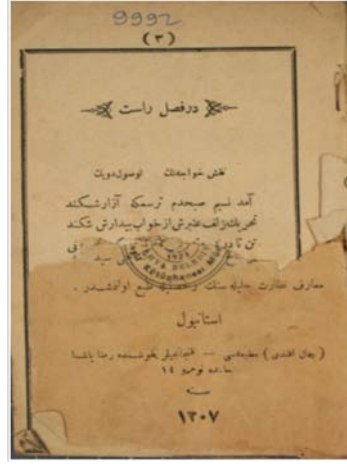 9992
(٣)
در فصل راست
نقش خواجه‌نك اوصول دويك
آمد نسيم صبحدم ترسم كه آزارش كند
تحريك زلف عنبرش از خواب بيدارش كند
تن تا
معارف نظارت جليله‌سنك طبع اولنمشدر .
استانبول
( جمال افندى ) مطبعه‌سى — فنجانجيلر يقوشنده رضا پاشا
خاننده نومرو ١٤
سنه
١٣٠٧